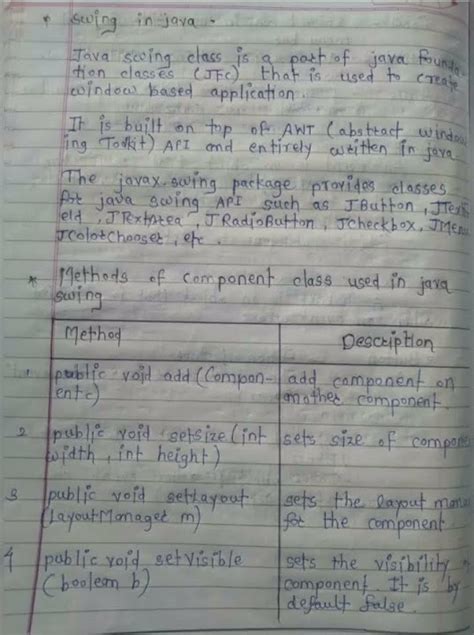 * swing in java -
Java swing class is a part of java Founda
tion classes (JFC) that is used to create
window based application.
It is built on top of AWT (abstract window
ing Toolkit) API and entirely written in java
The javax.swing package provides classes
for java swing API such as JButton, JTextfi
eld, JTextArea, JRadioButton, Jcheckbox, JMenu
JColorChooser, etc.
* Methods of component class used in java
swing
Method Description
1 public void add (Compon- add component on
ent c) another component.
2 public void setsize (int sets size of compone
width, int height)
3 public void setLayout sets the layout mana
(LayoutManager m) for the component
4 public void setVisible sets the visibility
(boolean b) component. It is by
default false.